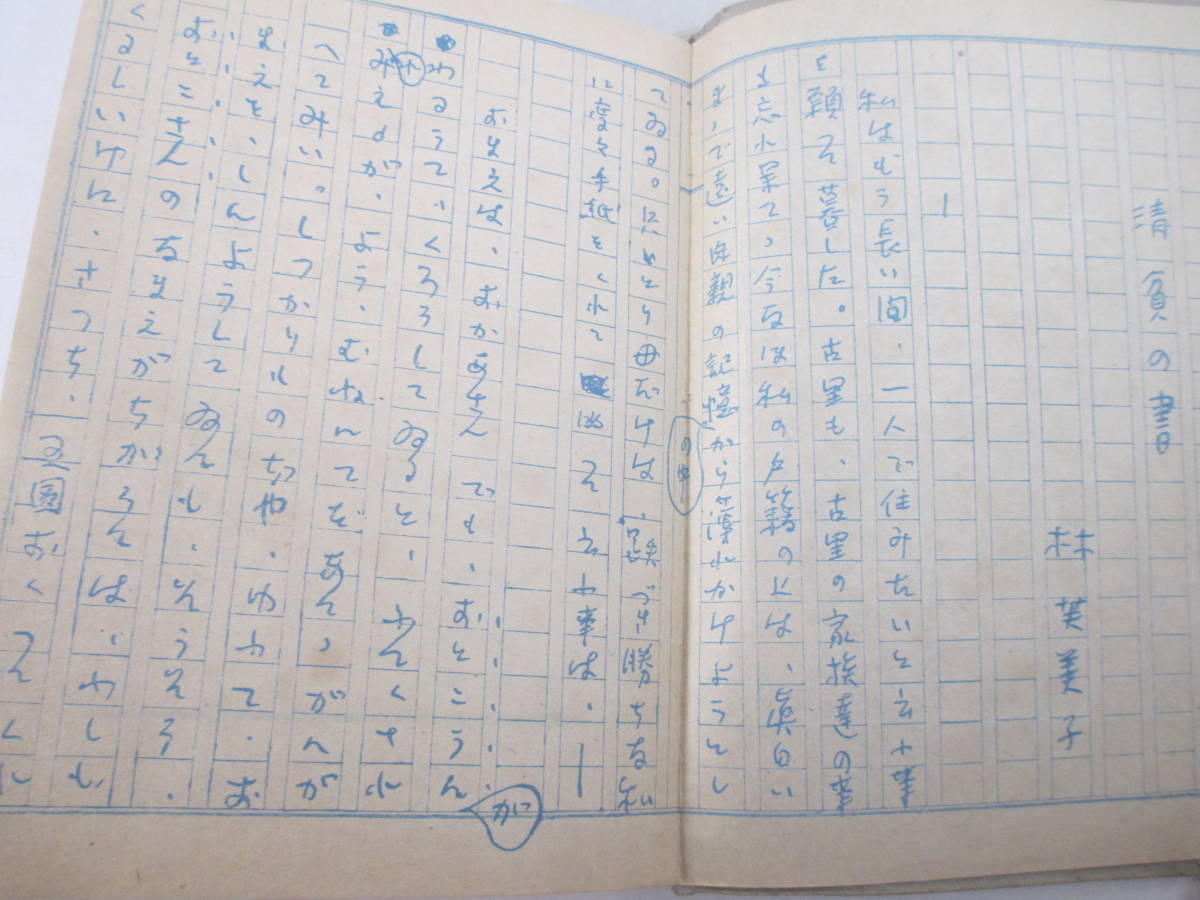 清貧の書
林芙美子
一
私はもう長い間、一人で住みたいと云ふ事
を願つて暮した。古里も、古里の家族達の事
も忘れ果てゝ今なほ私の戸籍の上は、眞白い
まゝで遠い肉親の記憶の中から薄れかけようとし
てゐる。只ひとり母だけは、跌づき勝ちな私
に度々手紙をくれて叱つて云ふ事は、―
おまえは、おかあさんでも、おとこうんが
わるうて、くろうしてゐると、ふてくされ
てみえるが、よう、むねにてをあてゝ、かんが
へてみい。しつかりものぢや、ゆふて、お
まえを、しんようしてゐても、そうそう、
おとこさんのなまえがちがうては、わしも
くるしいけに、さつち、五圓おくつてくれ